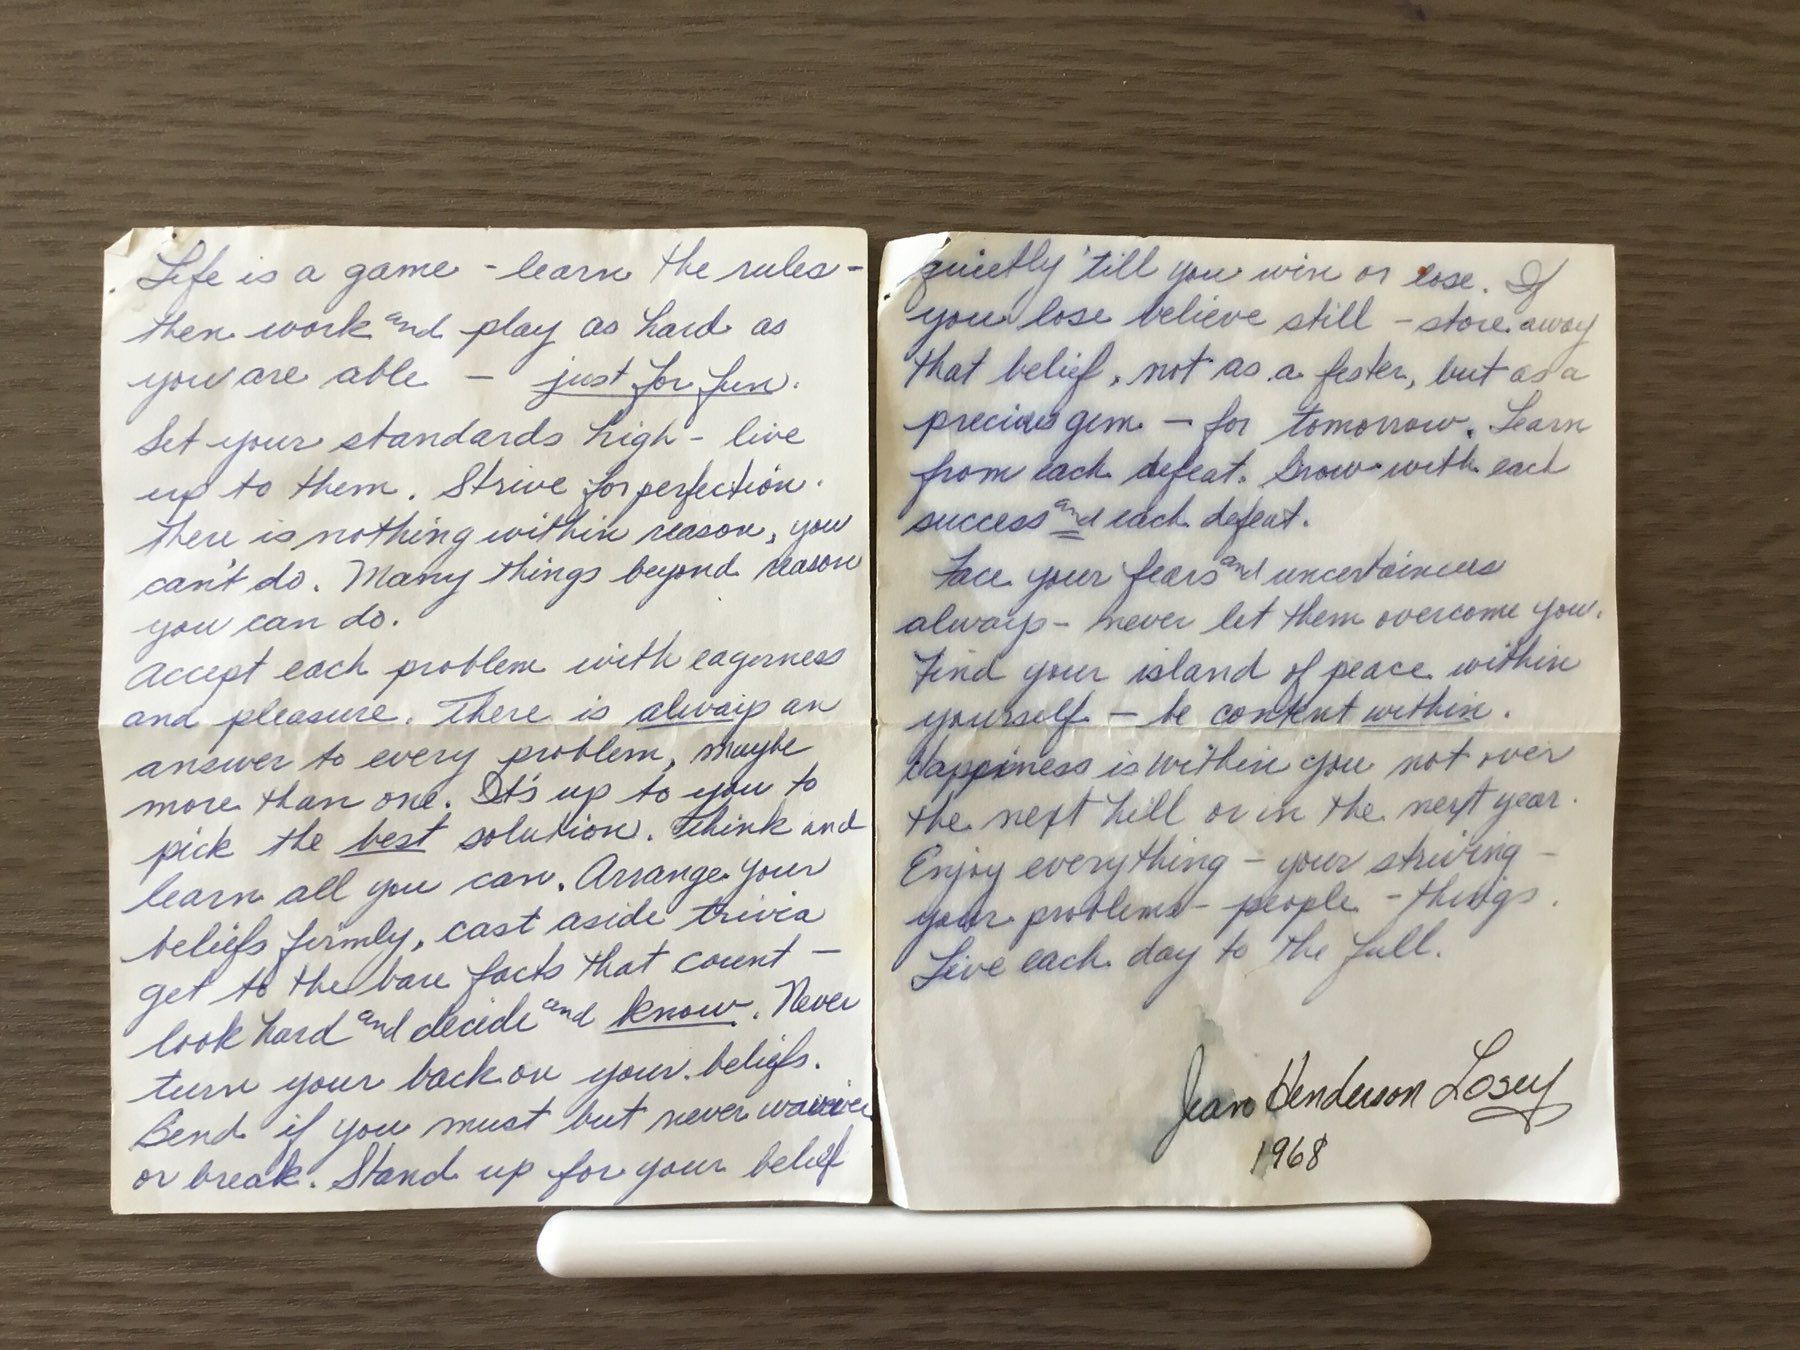 Life is a game - learn the rules -
then work and play as hard as
you are able - just for fun.
Set your standards high - live
up to them. Strive for perfection.
There is nothing within reason, you
can't do. Many things beyond reason
you can do.
Accept each problem with eagerness
and pleasure. There is always an
answer to every problem, maybe
more than one. It's up to you to
pick the best solution. Think and
learn all you can. Arrange your
beliefs firmly, cast aside trivia
get to the bare facts that count -
look hard and decide and know. Never
turn your back on your beliefs.
Bend if you must but never waiver
or break. Stand up for your belief
quietly 'till you win or lose. If
you lose believe still - store away
that belief, not as a fester, but as a
precious gem - for tomorrow. Learn
from each defeat. Grow with each
success and each defeat.
Face your fears and uncertaincies
always - never let them overcome you.
Find your island of peace within
yourself - be content within.
Happiness is within you not over
the next hill or in the next year.
Enjoy everything - your striving -
your problems - people - things.
Live each day to the full.
Jean Henderson Losey
1968